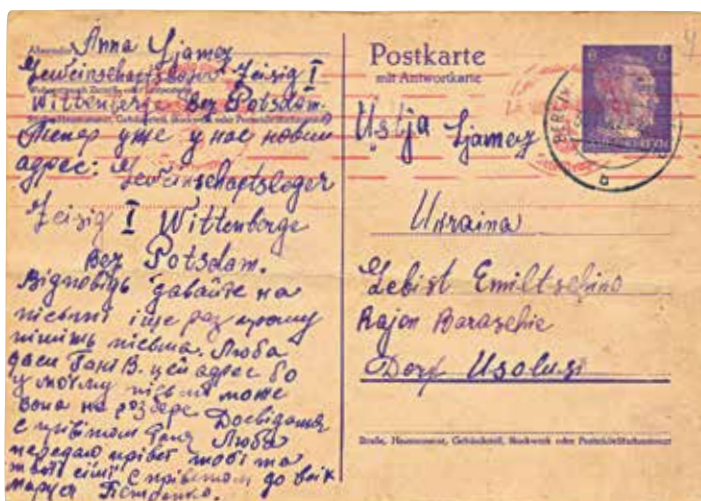 Absender: Anna Ljamez
Gemeinschaftslager Zeisig I
Wittenberge Bez Potsdam.
Тепер уже у нас новий
адрес: Gemeinschaftsloger
Zeisig I Wittenberge
Bez Potsdam.
Відповідь давайте на
письмі іще раз прошу
пишіть письма. Люба
даси Гані В. цей адрес бо
у моєму письмі може
вона не розбере Досвідання
с привітом Люба
передаю привет тобі та
твоїй сім'ї с привітом до всіх
Маруся
Postkarte
mit Antwortkarte
6
BERLIN
Ustja Ljamez
Ukraina
Gebist Emiltschino
Rajon Baraschie
Dorf Usolusi
Straße, Hausnummer, Gebäudeteil, Stockwerk oder Postschließfachnummer